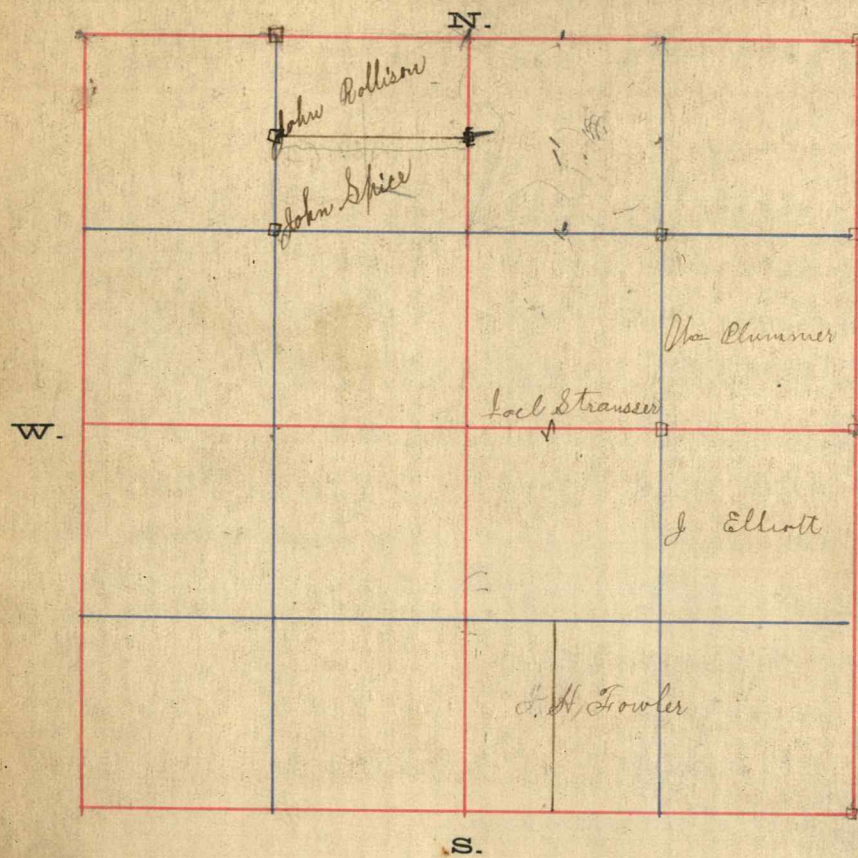 N.
John Rollison
John Spice
Plummer
Joel Strausser
W.
J Elliott
H, Fowler
S.